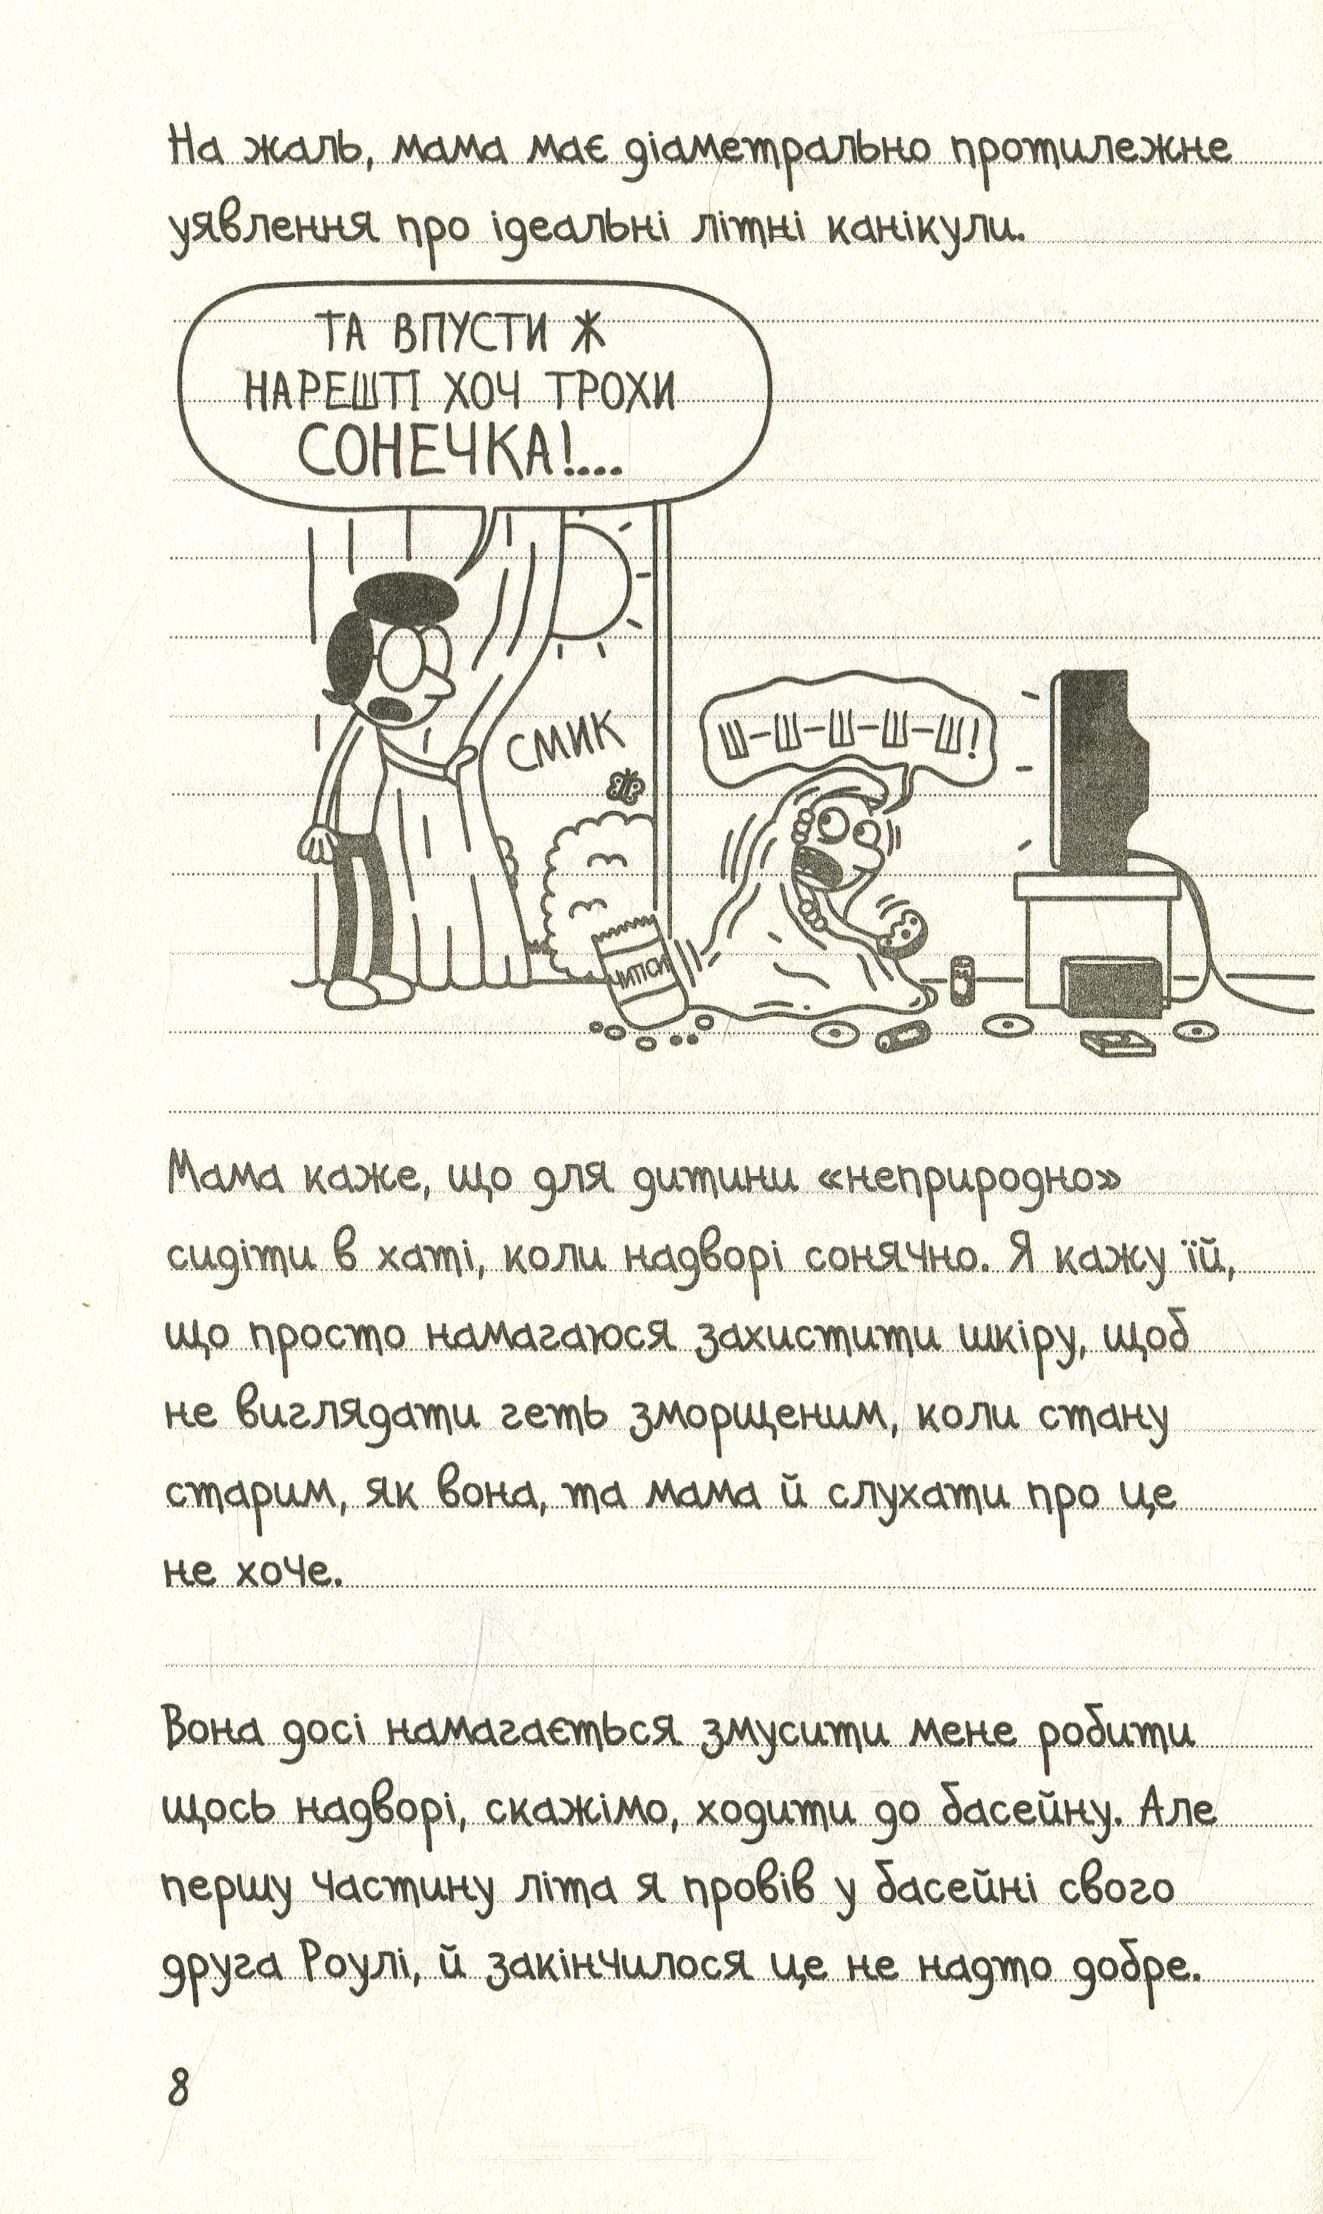 На жаль, мама має діаметрально протилежне
уявлення про ідеальні літні канікули.
ТА ВПУСТИ Ж
НАРЕШТІ ХОЧ ТРОХИ
СОНЕЧКА!...
СМИК
Ш-Ш-Ш-Ш-Ш!
ЧИПСИ
Мама каже, що для дитини «неприродно»
сидіти в хаті, коли надворі сонячно. Я кажу їй,
що просто намагаюся захистити шкіру, щоб
не виглядати геть зморщеним, коли стану
старим, як вона, та мама й слухати про це
не хоче.
Вона досі намагається змусити мене робити
щось надворі, скажімо, ходити до басейну. Але
першу частину літа я провів у басейні свого
друга Роулі, й закінчилося це не надто добре.
8